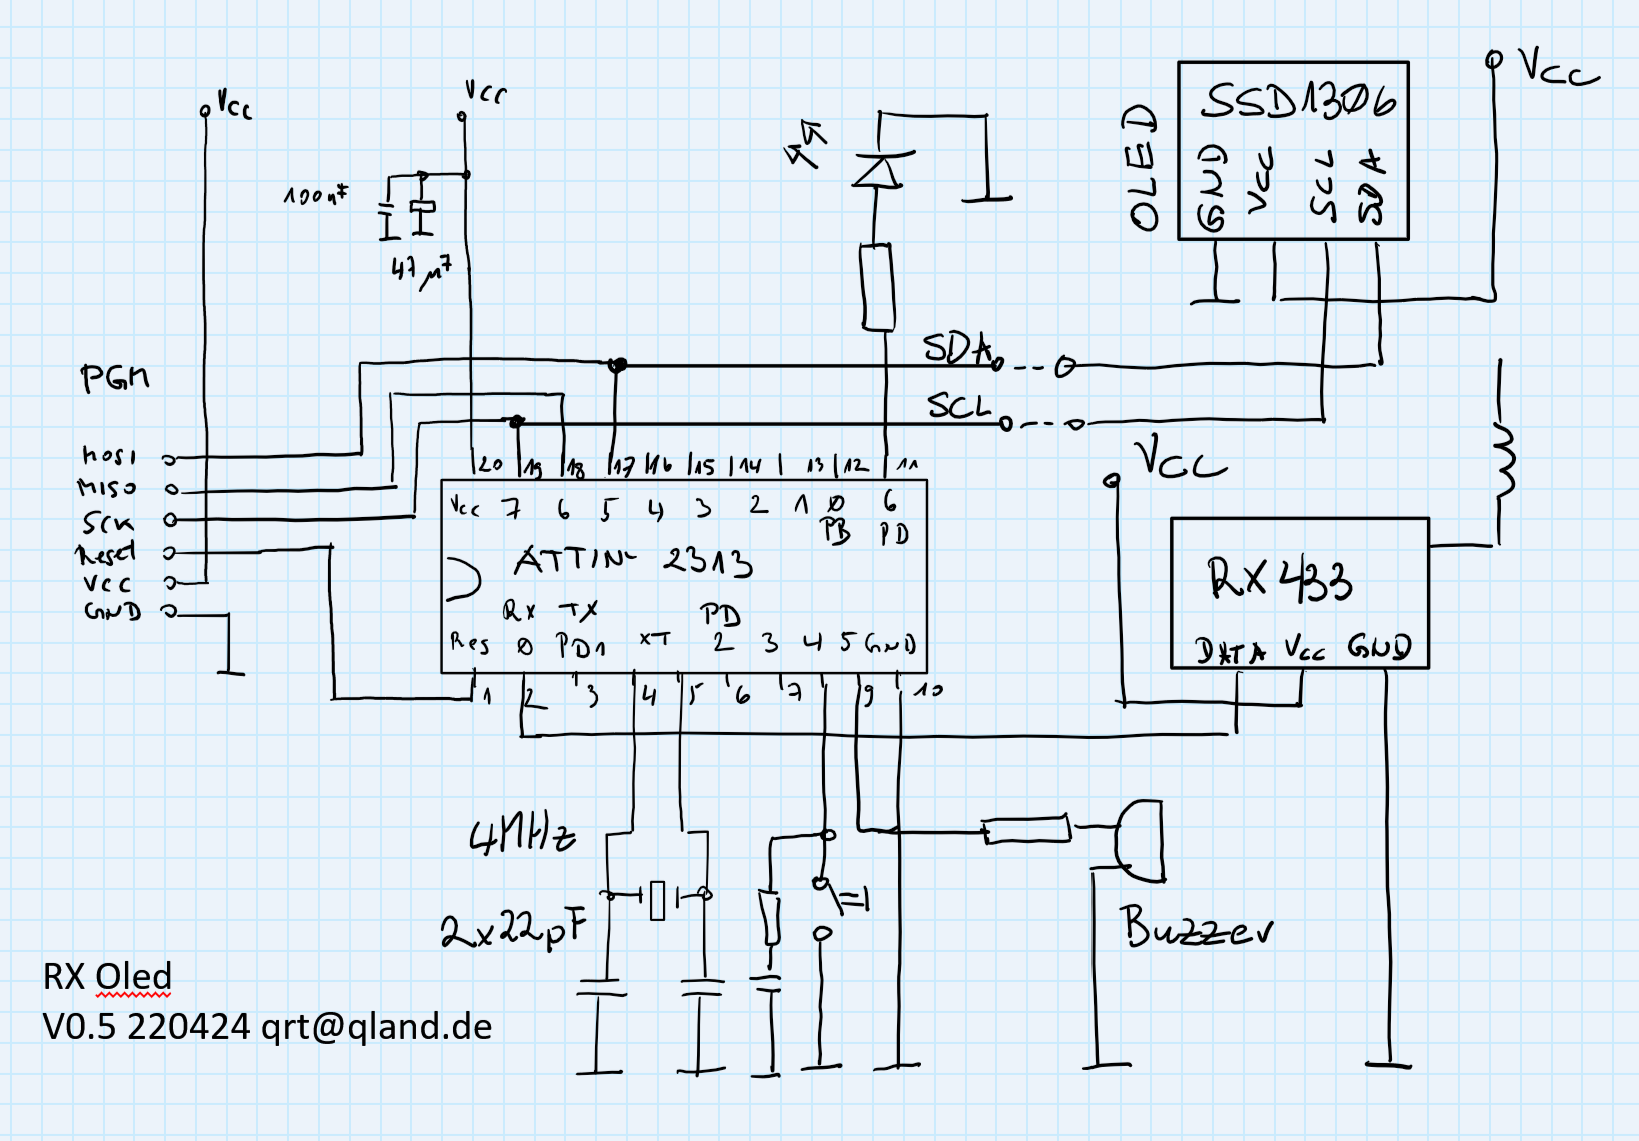 Vcc
Vcc
100n
47µF
OLED
SSD1306
GND
Vcc
SCL
SDA
Vcc
SDA
SCL
PGM
MOSI
MISO
SCK
Reset
VCC
GND
20 19 18 17 16 15 14 13 12 11
Vcc 7 6 5 4 3 2 1 0 6
PB PD
ATTINY 2313
RX TX PD
Res 0 PD1 XT 2 3 4 5 GND
1 2 3 4 5 6 7 9 10
Vcc
RX 433
DATA Vcc GND
4MHz
2x22pF
Buzzer
RX Oled
V0.5 220424 qrt@qland.de